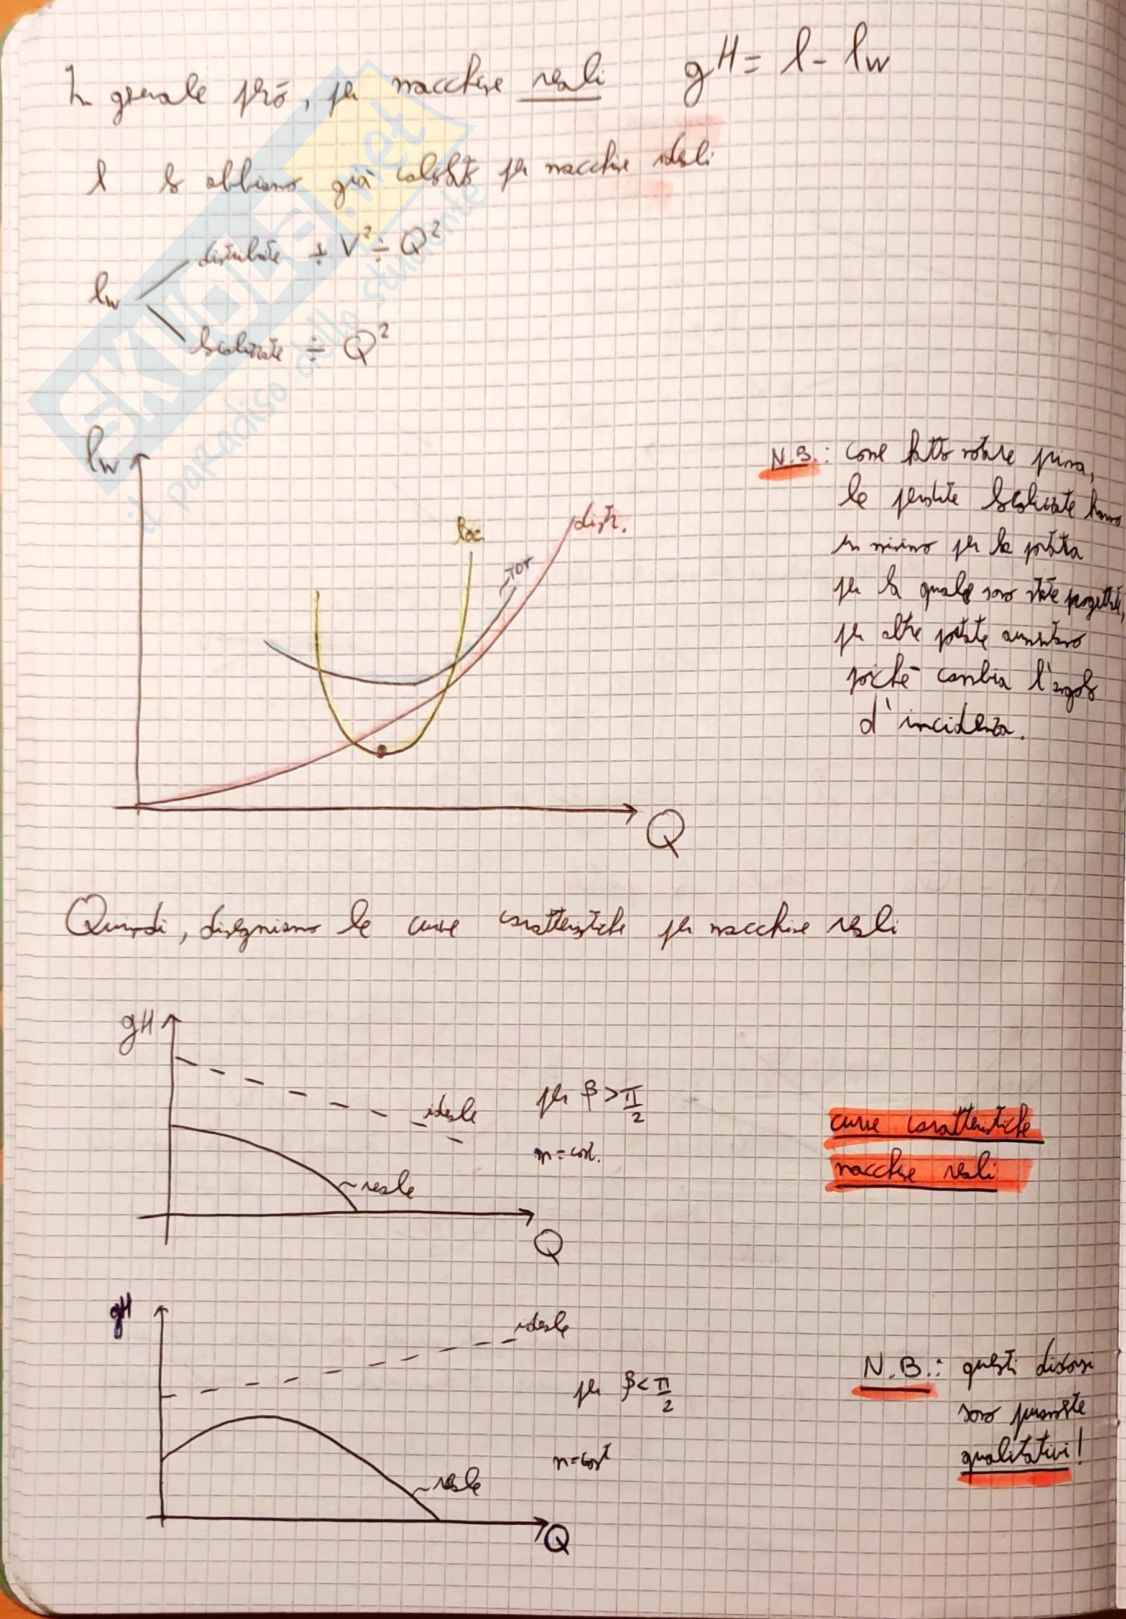 In generale però, per macchine reali gH = l - lw
l lo abbiamo già calcolato per macchine ideali
lw
distribuite ÷ V² ÷ Q²
localizzate ÷ Q²
SKUOLA.net
il paradiso dello studente
lw
loc
TOT
distr.
Q
N.B.: come fatto notare prima,
le perdite localizzate hanno
un minimo per la portata
per la quale sono state progettate,
per altre portate aumentano
poiché cambia l'angolo
d'incidenza.
Quindi, disegniamo le curve caratteristiche per macchine reali
gH
ideale
reale
Q
per β > π/2
n = cost.
curve caratteristiche
macchine reali
gH
ideale
reale
Q
per β < π/2
n = cost
N.B.: questi discorsi
sono puramente
qualitativi!